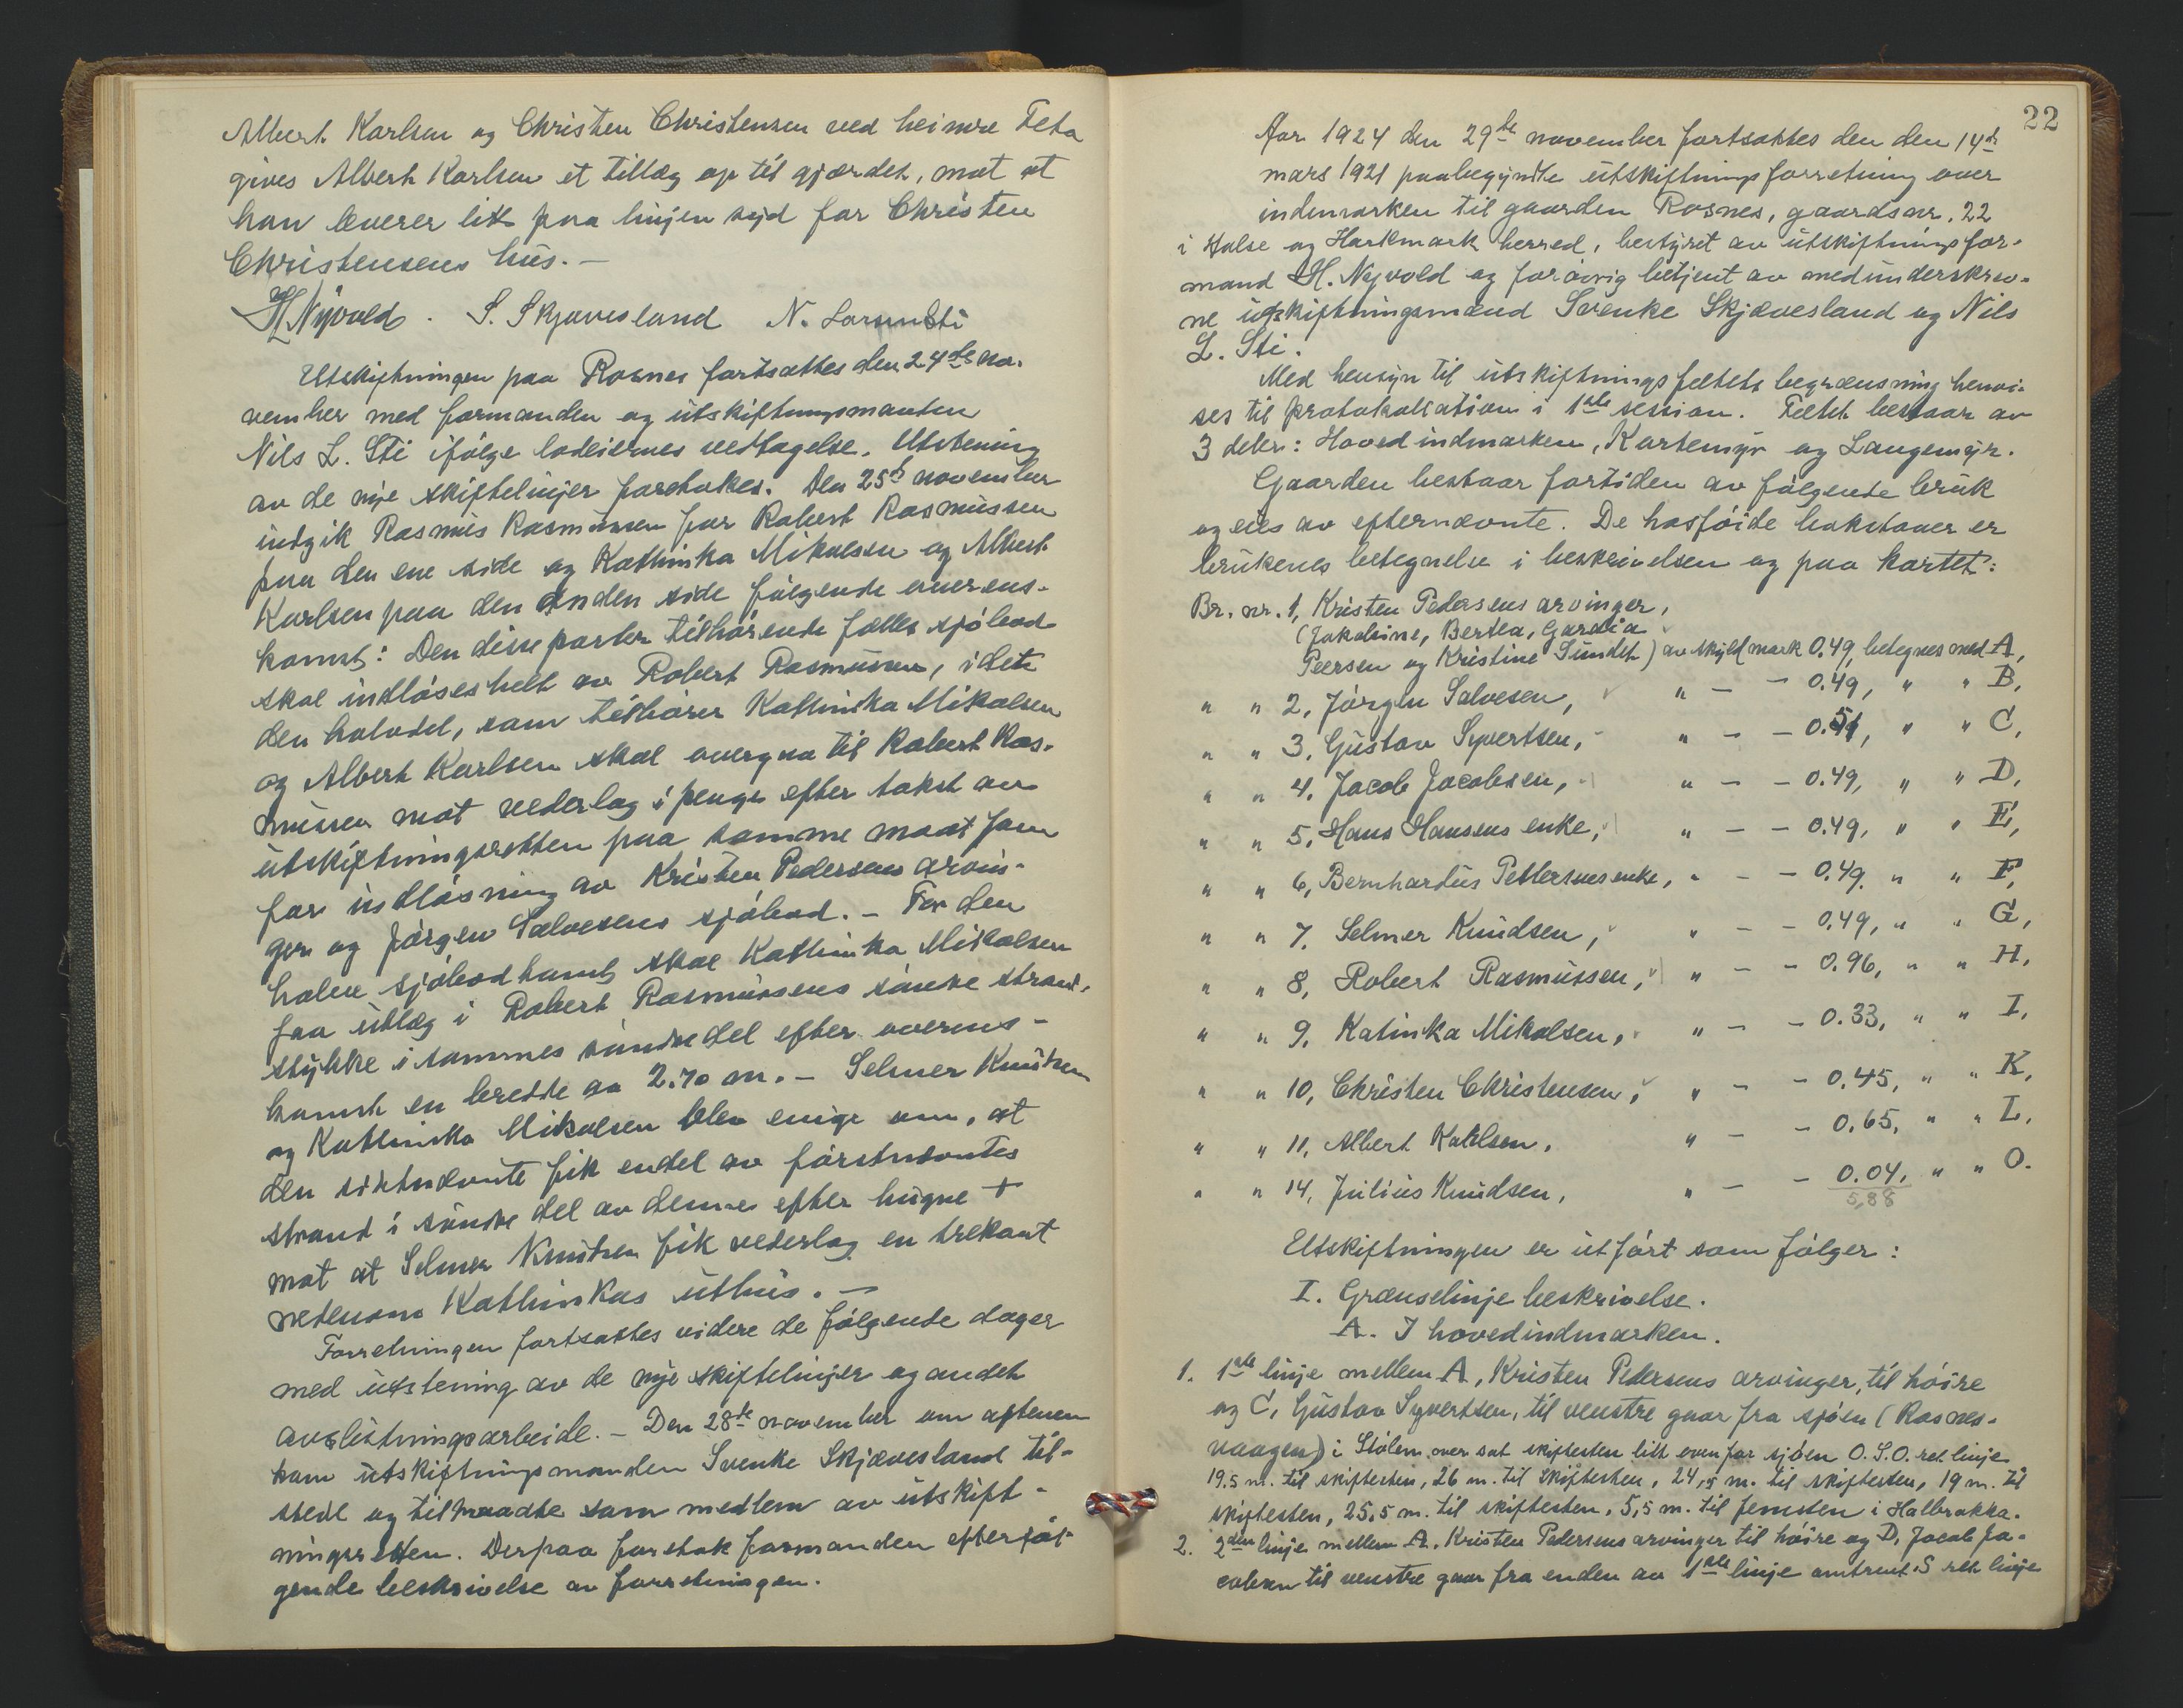 Albert Karlsen og Christen Christensen ved heimre Teta
gives Albert Karlsen et tillæg op til gjærdet, mot at
han leverer litt paa linjen syd for Christen
Christensens hus. —
H Nyvold. S. Skjævesland N. Larsen Sti
Utskiftningen paa Rosnes fortsattes den 24de no-
vember med formanden og utskiftningsmanden
Nils L. Sti ifølge lodeiernes vedtagelse. Utstening
av de nye skiftelinjer foretokes. Den 25de november
indgik Rasmus Rasmussen for Robert Rasmussen
paa den ene side og Kathinka Mikalsen og Albert
Karlsen paa den anden side følgende overens-
komst: Den disse parter tilhørende fælles sjøbod
skal indløses helt av Robert Rasmussen, idet
den halvdel, som tilhører Kathinka Mikalsen
og Albert Karlsen skal overgaa til Robert Ras-
mussen mot vederlag i penge efter takst av
utskiftningsretten paa samme maate som
for indløsning av Kristen Pedersens arvin-
ger og Jørgen Salvesens sjøbod. — For den
halve sjøbodtomt skal Kathinka Mikalsen
faa utlæg i Robert Rasmussens søndre strand-
stykke i sammes søndre del efter overens-
komst en bredde av 2.70 m. — Selmer Knudsen
og Kathinka Mikalsen blev enige om, at
den sistnævnte fik endel av førstnævntes
strand i søndre del av dennes efter hugne +
mot at Selmer Knudsen fik vederlag en trekant
nedenom Kathinkas uthus. —
Forretningen fortsattes videre de følgende dager
med utstening av de nye skiftelinjer og andet
avslutningsarbeide. — Den 28de november om aftenen
kom utskiftningsmanden Svenke Skjævesland til-
stede og tiltraadte som medlem av utskift-
ningsretten. Derpaa foretok formanden efterføl-
gende beskrivelse av forretningen.
22
Aar 1924 den 29de november fortsattes den den 14de
mars 1921 paabegyndte utskiftningsforretning over
indmarken til gaarden Rosnes, gaardsnr. 22
i Halse og Harkmark herred, bestyret av utskiftningsfor-
mand H. Nyvold og forøvrig betjent av medunderskrev-
ne utskiftningsmænd Svenke Skjævesland og Nils
L. Sti.
Med hensyn til utskiftningsfeltets begrænsning henvi-
ses til protokollation i 1ste session. Feltet bestaar av
3 deler: Hovedindmarken, Kartemyr og Langemyr.
Gaarden bestaar fortiden av følgende bruk
og eies av efternævnte. De hosføide bokstaver er
brukenes betegnelse i beskrivelsen og paa kartet:
Br. nr. 1, Kristen Pedersens arvinger,
(Jakobine, Bertea, Gardia
Peersen og Kristine Sundet) av skyld mark 0.49, betegnes med A,
" " 2, Jørgen Salvesen, " — — 0.49, " " B,
" " 3. Gustav Syvertsen, " — — 0.51, " " C,
" " 4. Jacob Jacobsen, " — — 0.49, " " D,
" " 5, Hans Hansens enke, " — — 0.49, " " E,
" " 6, Bernhardus Pettersens enke, " — — 0.49. " " F,
" " 7. Selmer Knudsen, " — — 0.49, " " G,
" " 8, Robert Rasmussen, " — — 0.96, " " H,
" " 9. Katinka Mikalsen, " — — 0.33, " " I,
" " 10, Christen Christensen, " — — 0.45, " " K,
" " 11, Albert Karlsen, " — — 0.65, " " L,
" " 14, Julius Knudsen, " — — 0.04, " " O.
5,88
Utskiftningen er utført som følger:
I. Grænselinje beskrivelse.
A. I hovedindmarken.
1. 1ste linje mellem A, Kristen Pedersens arvinger, til høire
og C, Gustav Syvertsen, til venstre gaar fra sjøen (Rosnes-
vaagen) i Stølen over sat skiftesten litt ovenfor sjøen O.S.O. ret linje
19.5 m. til skiftesten, 26 m. til skiftesten, 24,5 m. til skiftesten, 19 m. til
skiftesten, 25,5 m. til skiftesten, 5,5 m. til femsten i Halbrakka.
2. 2den linje mellem A. Kristen Pedersens arvinger til høire og D, Jacob Ja-
cobsen til venstre gaar fra enden av 1ste linje omtrent S ret linje